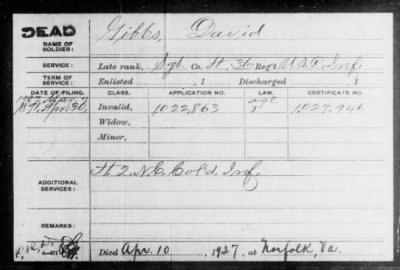 DEAD
NAME OF
SOLDIER:
Gibbs, David
SERVICE:
Late rank, Sgt. Co. H, 36 Reg't U.S.C. Inf.
TERM OF
SERVICE:
Enlisted , 1 Discharged , 1
DATE OF FILING. CLASS. APPLICATION NO. LAW. CERTIFICATE NO.
Apr. 30, Invalid, 1022,863 1027,946
Widow,
Minor,
ADDITIONAL
SERVICES:
H 2 N.C. Cold. Inf.
REMARKS:
Died Apr. 10, 1927, at Norfolk, Va.